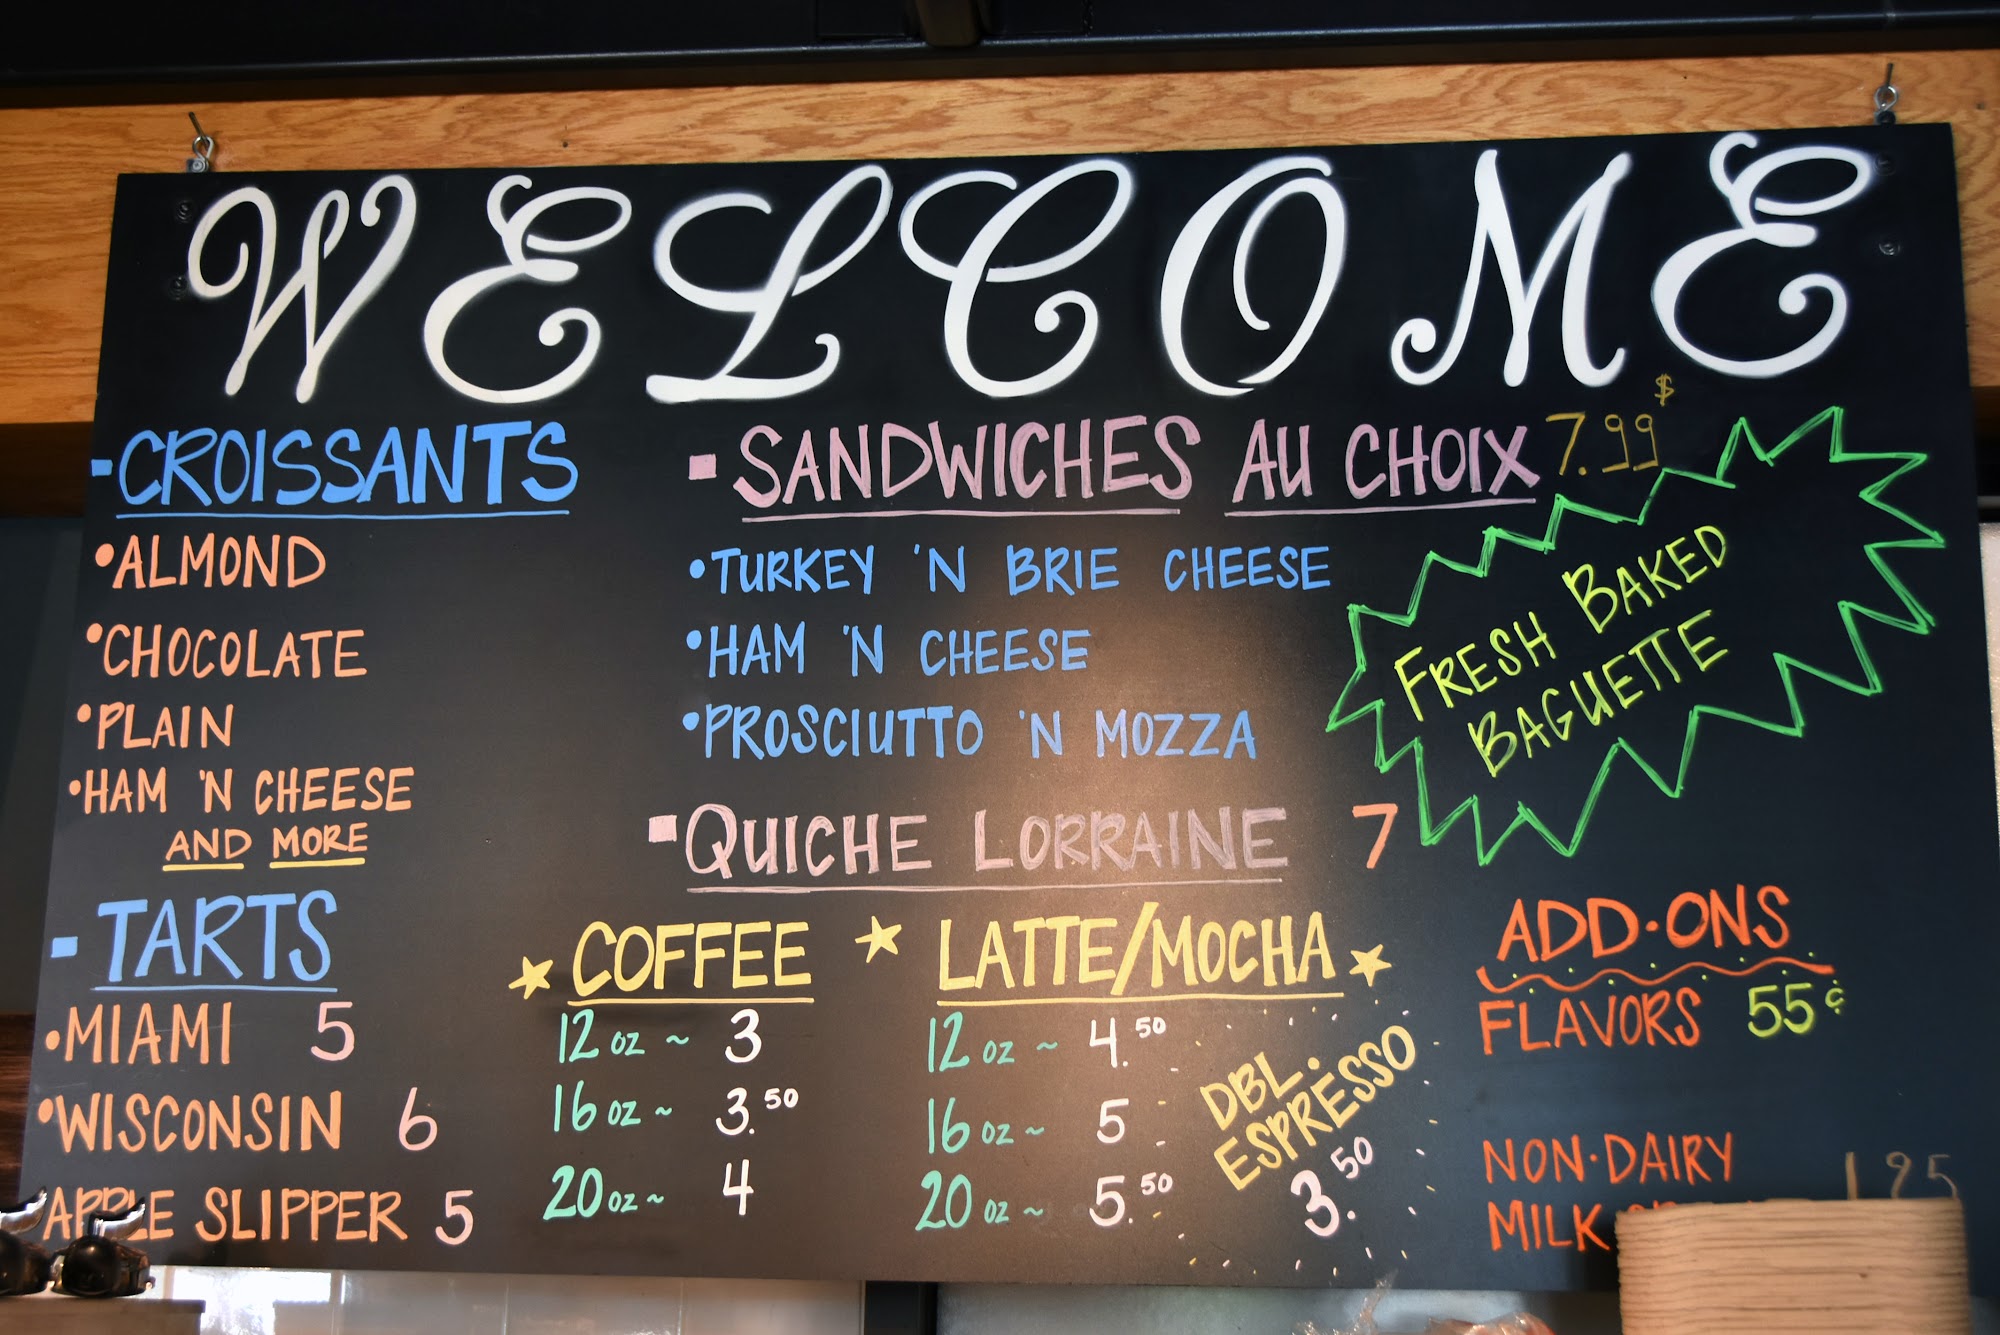 WELCOME
-CROISSANTS
•ALMOND
•CHOCOLATE
•PLAIN
•HAM 'N CHEESE
AND MORE
-TARTS
•MIAMI 5
•WISCONSIN 6
APPLE SLIPPER 5
SANDWICHES AU CHOIX 7.99$
•TURKEY 'N BRIE CHEESE
•HAM 'N CHEESE
•PROSCIUTTO 'N MOZZA
FRESH BAKED
BAGUETTE
QUICHE LORRAINE 7
COFFEE
12 oz ~ 3
16 oz ~ 3.50
20 oz ~ 4
LATTE/MOCHA
12 oz ~ 4.50
16 oz ~ 5
20 oz ~ 5.50
DBL.
ESPRESSO
3.50
ADD-ONS
FLAVORS 55¢
NON-DAIRY
MILK